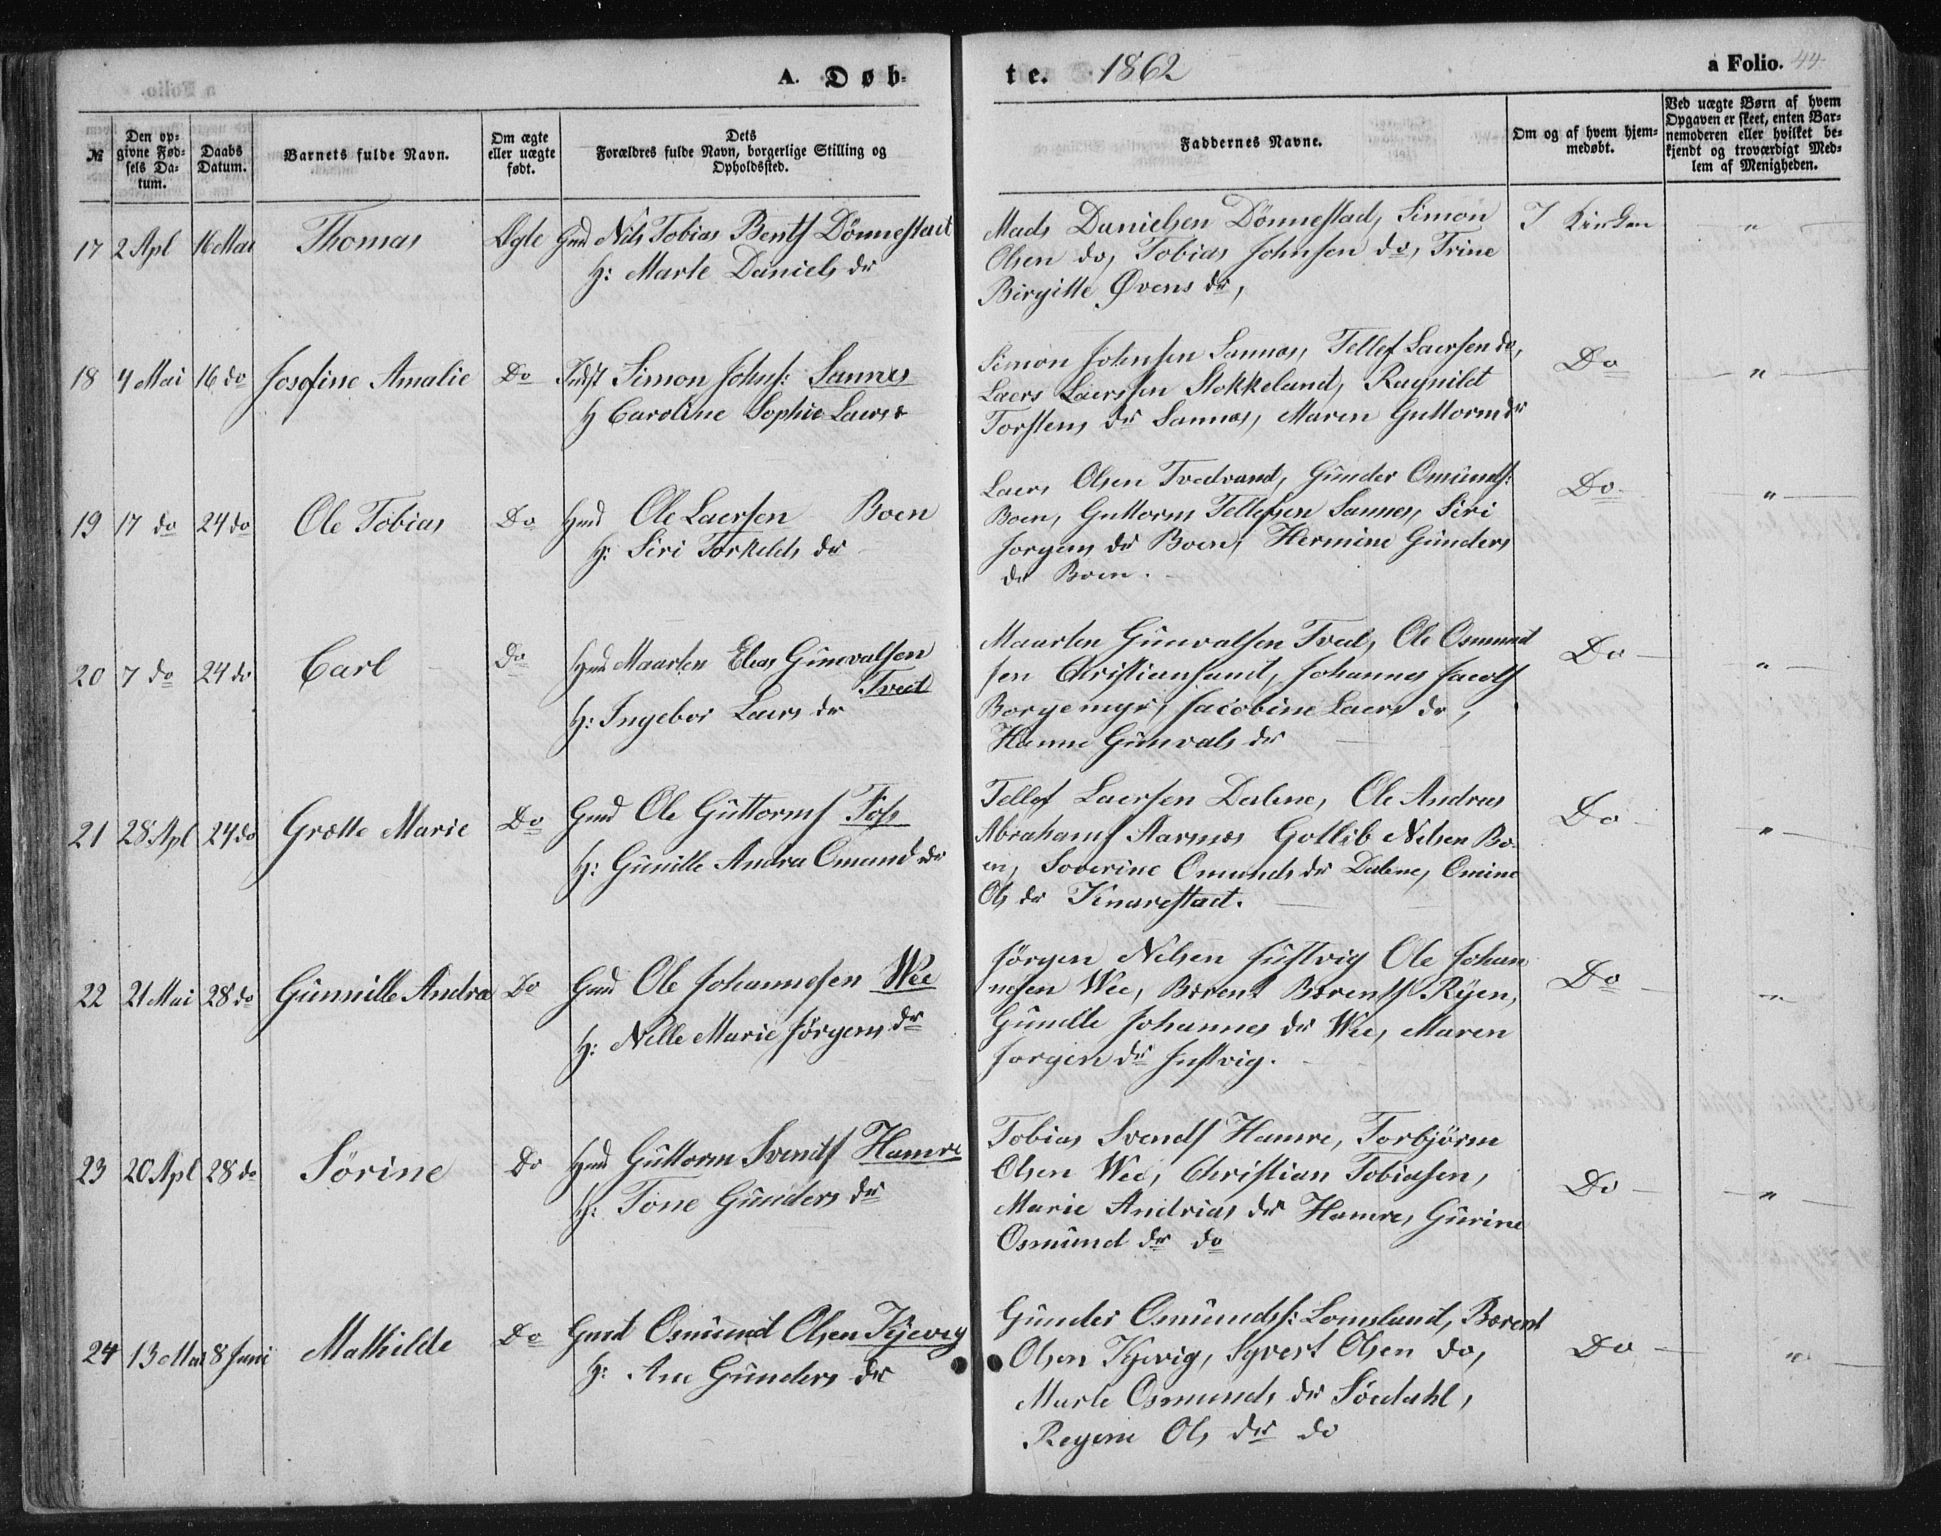 A. Døb-
te. 1862
a Folio. 44
№
Den op-
givne Fød-
sels Da-
tum.
Daabs
Datum.
Barnets fulde Navn.
Om ægte
eller uægte
født.
Dets
Forældres fulde Navn, borgerlige Stilling og
Opholdssted.
Faddernes Navne.
Om og af hvem hjem-
medøbt.
Ved uægte Børn af hvem
Opgaven er skeet, enten Bar-
nemoderen eller hvilket be-
kjendt og troværdigt Med-
lem af Menigheden.
17 2 Apl 16 Mai Thomas Ægte Gmd Nils Tobias Bents Dönnestad
H: Marte Daniels dr
Mads Danielsen Dönnestad, Simon
Olsen do, Tobias Johnsen do, Trine
Birgitte Øvens dr,
I Kirken "
18 4 Mai 16 do Josefine Amalie Do Indst Simon Johns: Sannes
H Caroline Sophie Laers
Simon Johnsen Sannes, Tellef Laersen do,
Laers Laerssen Stokkeland, Ragnild
Torstens dr Sannes, Maren Guttorm dr
Do "
19 17 do 24 do Ole Tobias Do Hmd Ole Laersen Boen
H: Siri Torkelds dr
Laers Olsen Tvedvand, Gunder Omunds:
Boen, Guttorm Tellefsen Sannes, Siri
Jorgens dr Boen, Hermine Gunders
dr Boen.
Do "
20 7 do 24 do Carl Do Hmd Maarten Elias Gunvalsen
Tveit
H: Ingebor Laers dr
Maarten Gunvalsen Tved, Ole Osmund
sen Christiansand, Johannes Jacobs
Borgemyr, Jacobine Laers dr,
Hanne Gunvals dr
Do "
21 28 Apl 24 do Grætte Marie Do Gmd Ole Guttorms Foss
H: Gunille Andra Omund dr
Tellef Laersen Dalene, Ole Andreas
Abrahams Aarnes Gotlib Nilsen Bo-
en, Soverine Omunds dr Dalene, Omine
Ols dr Kinarestad.
Do "
22 21 Mai 28 do Gunnille Andrea Do Gmd Ole Johannesen Wee
H: Nelle Marie Jörgens dr
Jörgen Nilsen Justvig Ole Johan
nesen Wee, Bærent Bærents Ryen,
Gunille Johannes dr Wee, Maren
Jorgen dr Justvig.
Do "
23 20 Apl 28 do Sörine Do Hmd Guttorm Svends Hamre
H: Tone Gunders dr
Tobias Svends Hamre, Torbjörn
Olsen Wee, Christian Tobiasen,
Marie Andrias dr Hamre, Gurine
Osmund dr do
Do "
24 13 Mai 8 Juni Mathilde Do Gmd Osmund Olsen Kjevig
H: Ane Gunders dr
Gunder Osmunds: Lomsland, Bærent
Olsen Kjevig, Syvert Olsen do,
Marte Osmunds dr Sördahl,
Regine Ols dr do
Do "